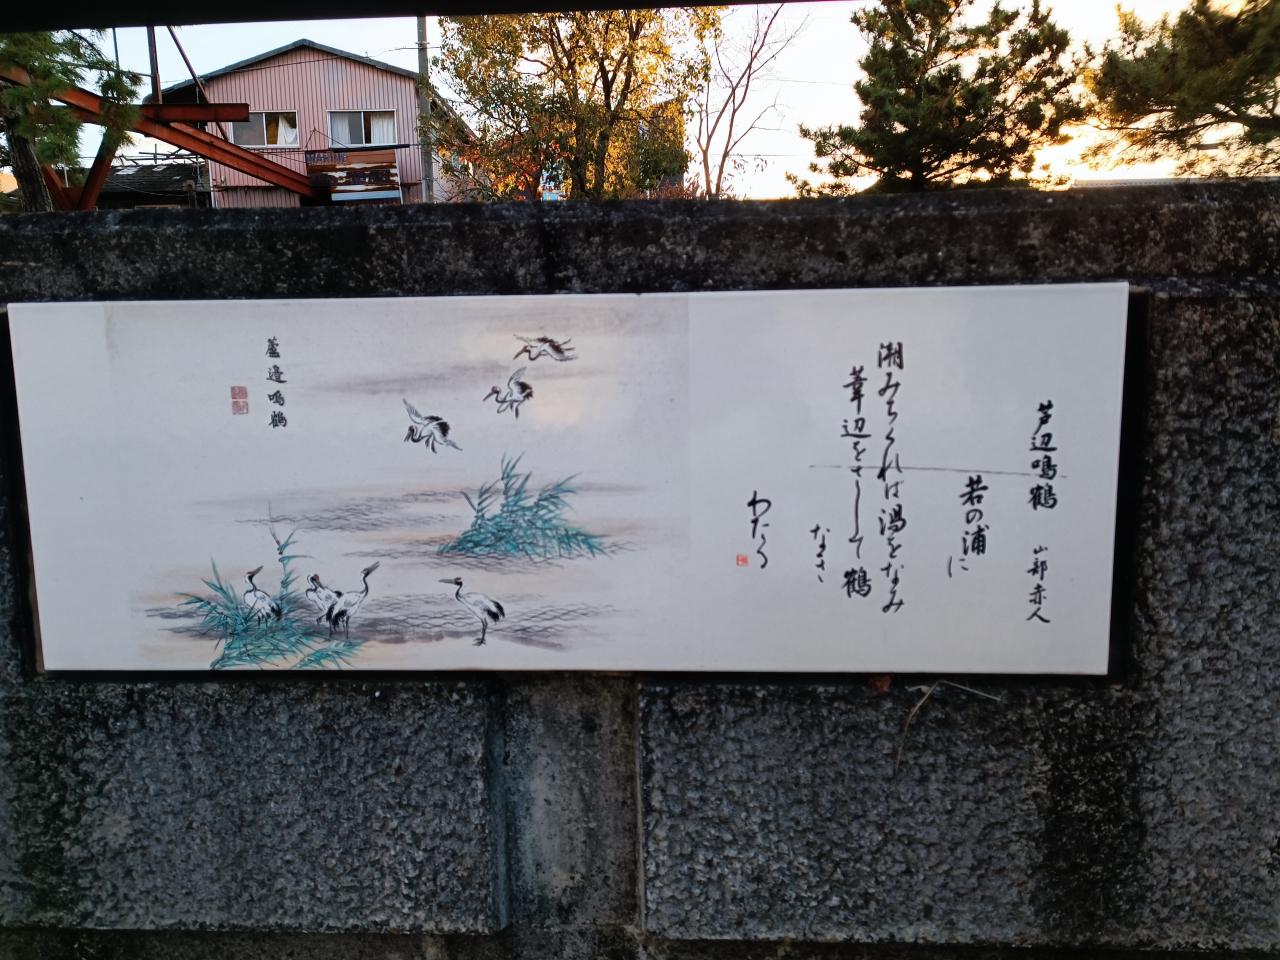 芦辺鳴鶴 山部赤人
若の浦に
潮みちくれば潟をなみ
葦辺をさして鶴
なきさ
わたる
蘆邉鳴鶴
MARINE